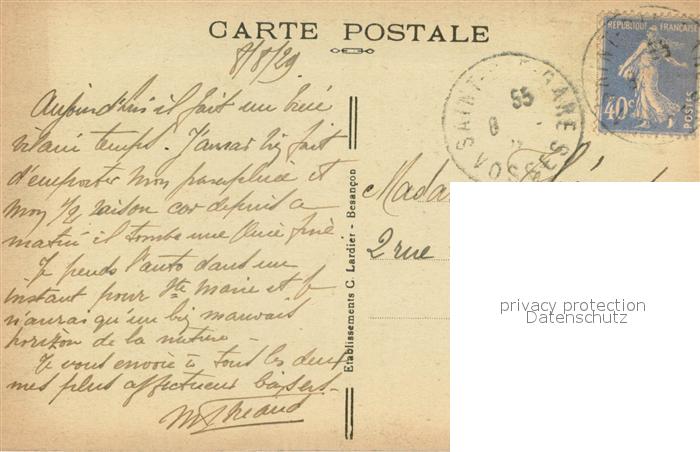 CARTE POSTALE
8/8/29
Aujourd'hui il fait un
vilain temps. J'aurai fait
d'emporter mon parapluie et
mon raison car depuis ce
matin il tombe une pluie fine
Je prends l'auto dans un
instant pour Ste Marie et je
n'aurai qu'un mauvais
horizon de la nature -
Je vous envoie à tous les deux
mes plus affectueux baisers.
Établissements C. Lardier - Besançon
SAINT GARE
VOSGES
55
8
REPUBLIQUE FRANÇAISE
40c
POSTES
Madame
2 rue
privacy protection
Datenschutz